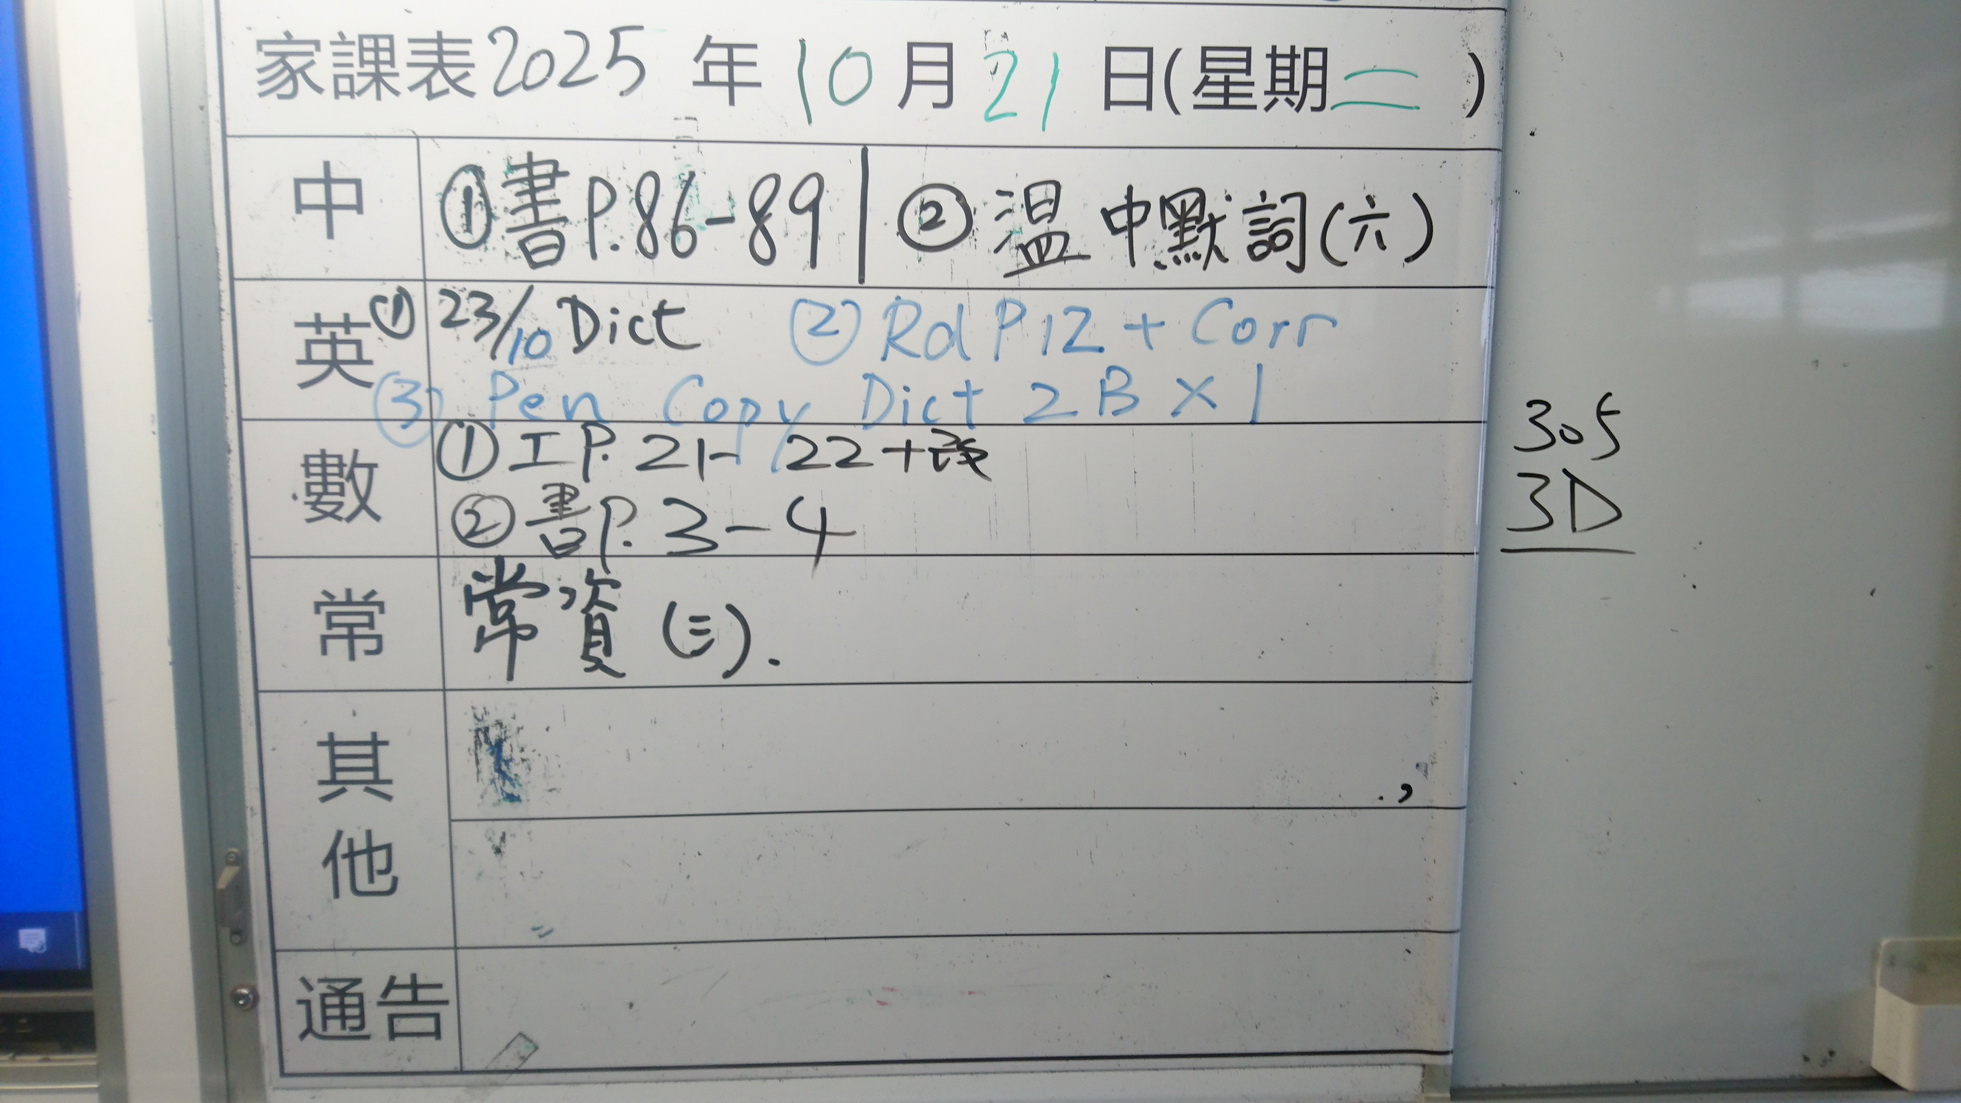 家課表2025年10月21日(星期二)
中 ①書P.86-89 | ②溫中默詞(六)
英 ① 23/10 Dict ② Rd P12 + Corr
③ Pen Copy Dict 2B × 1
數 ①工P. 21-22+
②書P. 3-4
常 常資(三).
其他
通告
305
3D